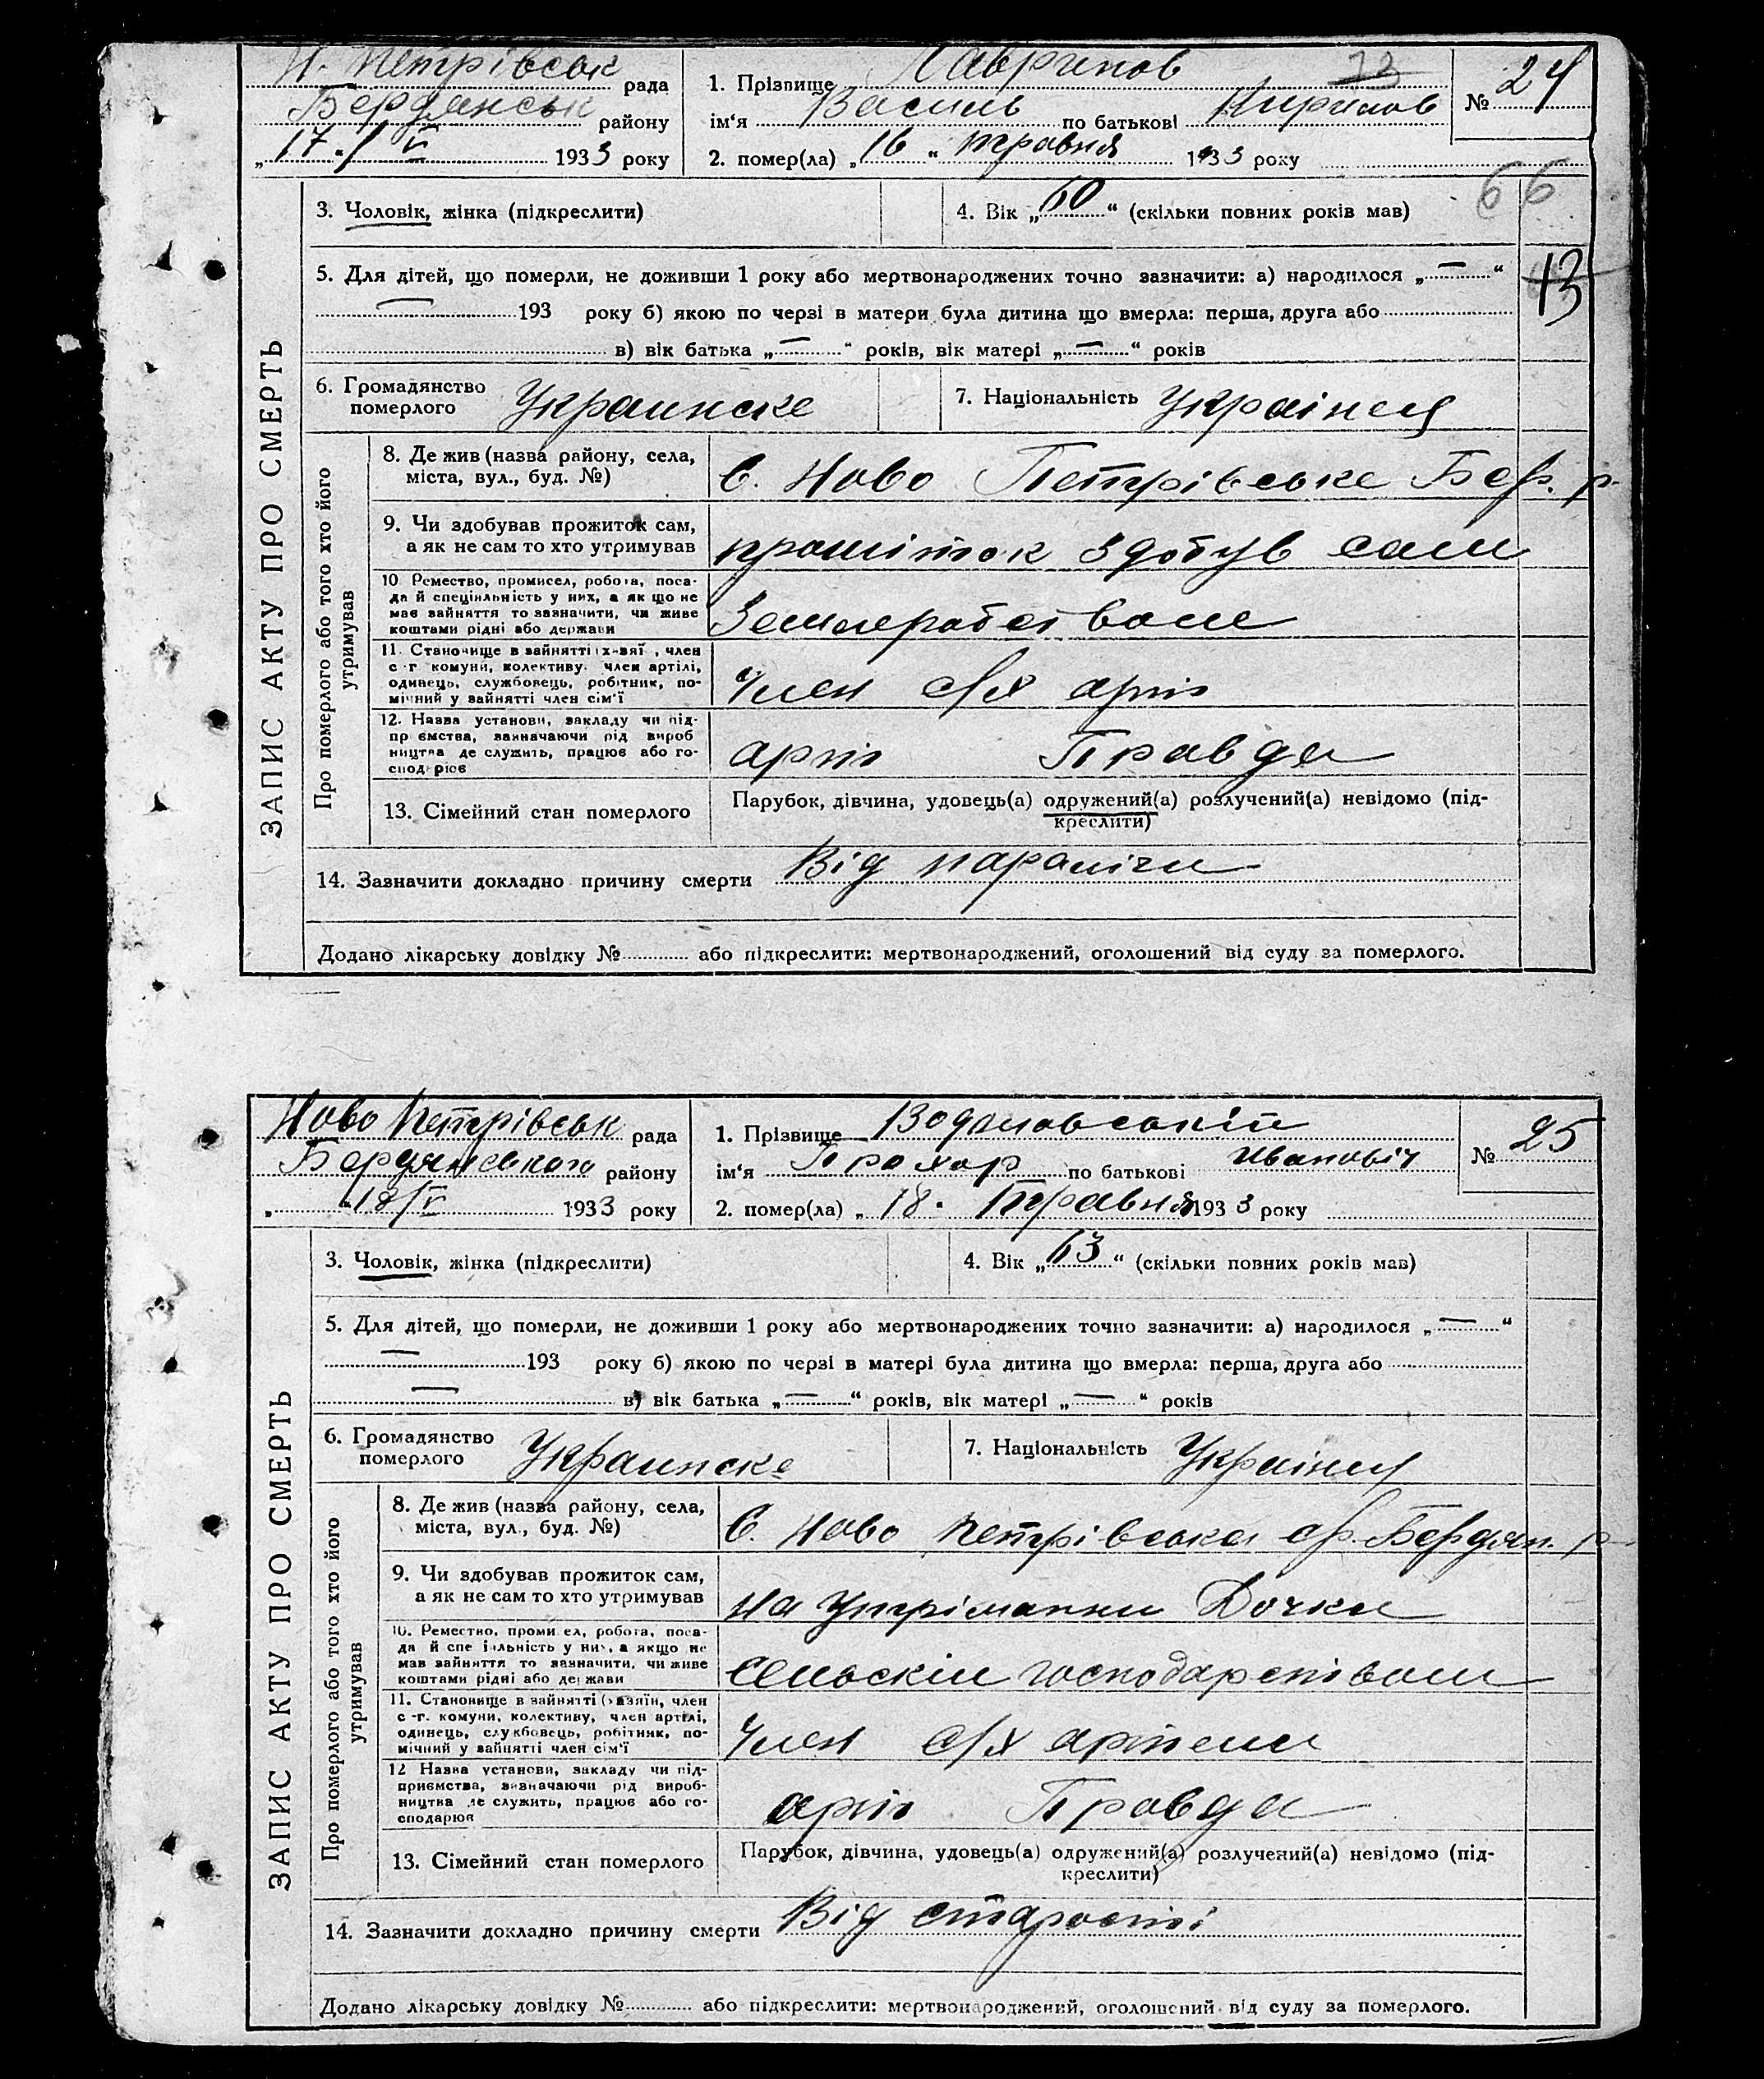 Н. Петрівськ рада
Бердянськ району
„17 / V 1933 року
1. Прізвище Лавринов
ім‘я Василь по батькові Кирилов
2. помер(ла) „16“ травня 1933 року
73
№ 24
66
3. Чоловік, жінка (підкреслити)
4. Вік „60“ (скільки повних років мав)
13
5. Для дітей, що померли, не доживши 1 року або мертвонароджених точно зазначити: а) народилося „—“
— 193 року б) якою по черзі в матери була дитина що вмерла: перша, друга або
в) вік батька „—“ років, вік матері „—“ років
6. Громадянство
померлого Украинске
7. Національність Українец
ЗАПИС АКТУ ПРО СМЕРТЬ
Про померлого або того хто його
утримував
8. Де жив (назва району, села,
міста, вул., буд. №)
С. Ново Петрівське Бер. р.
9. Чи здобував прожиток сам,
а як не сам то хто утримував
прошіток здобув сам
10. Ремество, промисел, робота, поса-
да й спеціяльність у них, а як що не
має зайняття то зазначити, чи живе
коштами рідні або держави
Землеробством
11. Становище в зайнятті (х-зяї , член
с-г комуни, колективу, член артілі,
одинець, службовець, робітник, по-
мічний у зайнятті член сім‘ї
Член с/х арт
12. Назва установи, закладу чи під-
пр ємства, зазначаючи рід вироб
ництва де служить, працює або го-
сподарює
арт Правда
13. Сімейний стан померлого
Парубок, дівчина, удовець(а) одружений(а) розлучений(а) невідомо (під-
креслити)
14. Зазначити докладно причину смерти Від параліча
Додано лікарську довідку № або підкреслити: мертвонароджений, оголошений від суду за померлого.
Ново Петрівськ рада
Бердянського району
„18/V 1933 року
1. Прізвище Водяновський
ім‘я Прохор по батькові Иванович
2. помер(ла) „18. Травня 1933 року
№ 25
3. Чоловік, жінка (підкреслити)
4. Вік „63“ (скільки повних років мав)
5. Для дітей, що померли, не доживши 1 року або мертвонароджених точно зазначити: а) народилося „—“
— 193 року б) якою по черзі в матері була дитина що вмерла: перша, друга або
— в) вік батька „—“ років, вік матері „—“ років
6. Громадянство
померлого Украинске
7. Національність Українец
ЗАПИС АКТУ ПРО СМЕРТЬ
Про померлого або того хто його
утримував
8. Де жив (назва району, села,
міста, вул., буд. №)
С. Ново Петрівська ср. Бердян. р.
9. Чи здобував прожиток сам,
а як не сам то хто утримував
на утріманни Дочки
10. Ремество, проми ел, робота, поса-
да й спе іяльність у них, а якщо не
мав зайняття то зазначити, чи живе
коштами рідні або держави
Сельскім господарством
11. Становище в зайнятті (хазяїн, член
с-г. комуни, колективу, член артілі,
одинець, службовець, робітник, по-
мічний у зайнятті член сім‘ї
Член с/х артели
12 Назва установи, закладу чи під-
приємства, зазначаючи рід вироб-
ництва де служить, працює або го-
сподарює
арт Правда
13. Сімейний стан померлого
Парубок, дівчина, удовець(а) одружений(а) розлучений(а) невідомо (під-
креслити)
14. Зазначити докладно причину смерти Від старости
Додано лікарську довідку № або підкреслити: мертвонароджений, оголошений від суду за померлого.